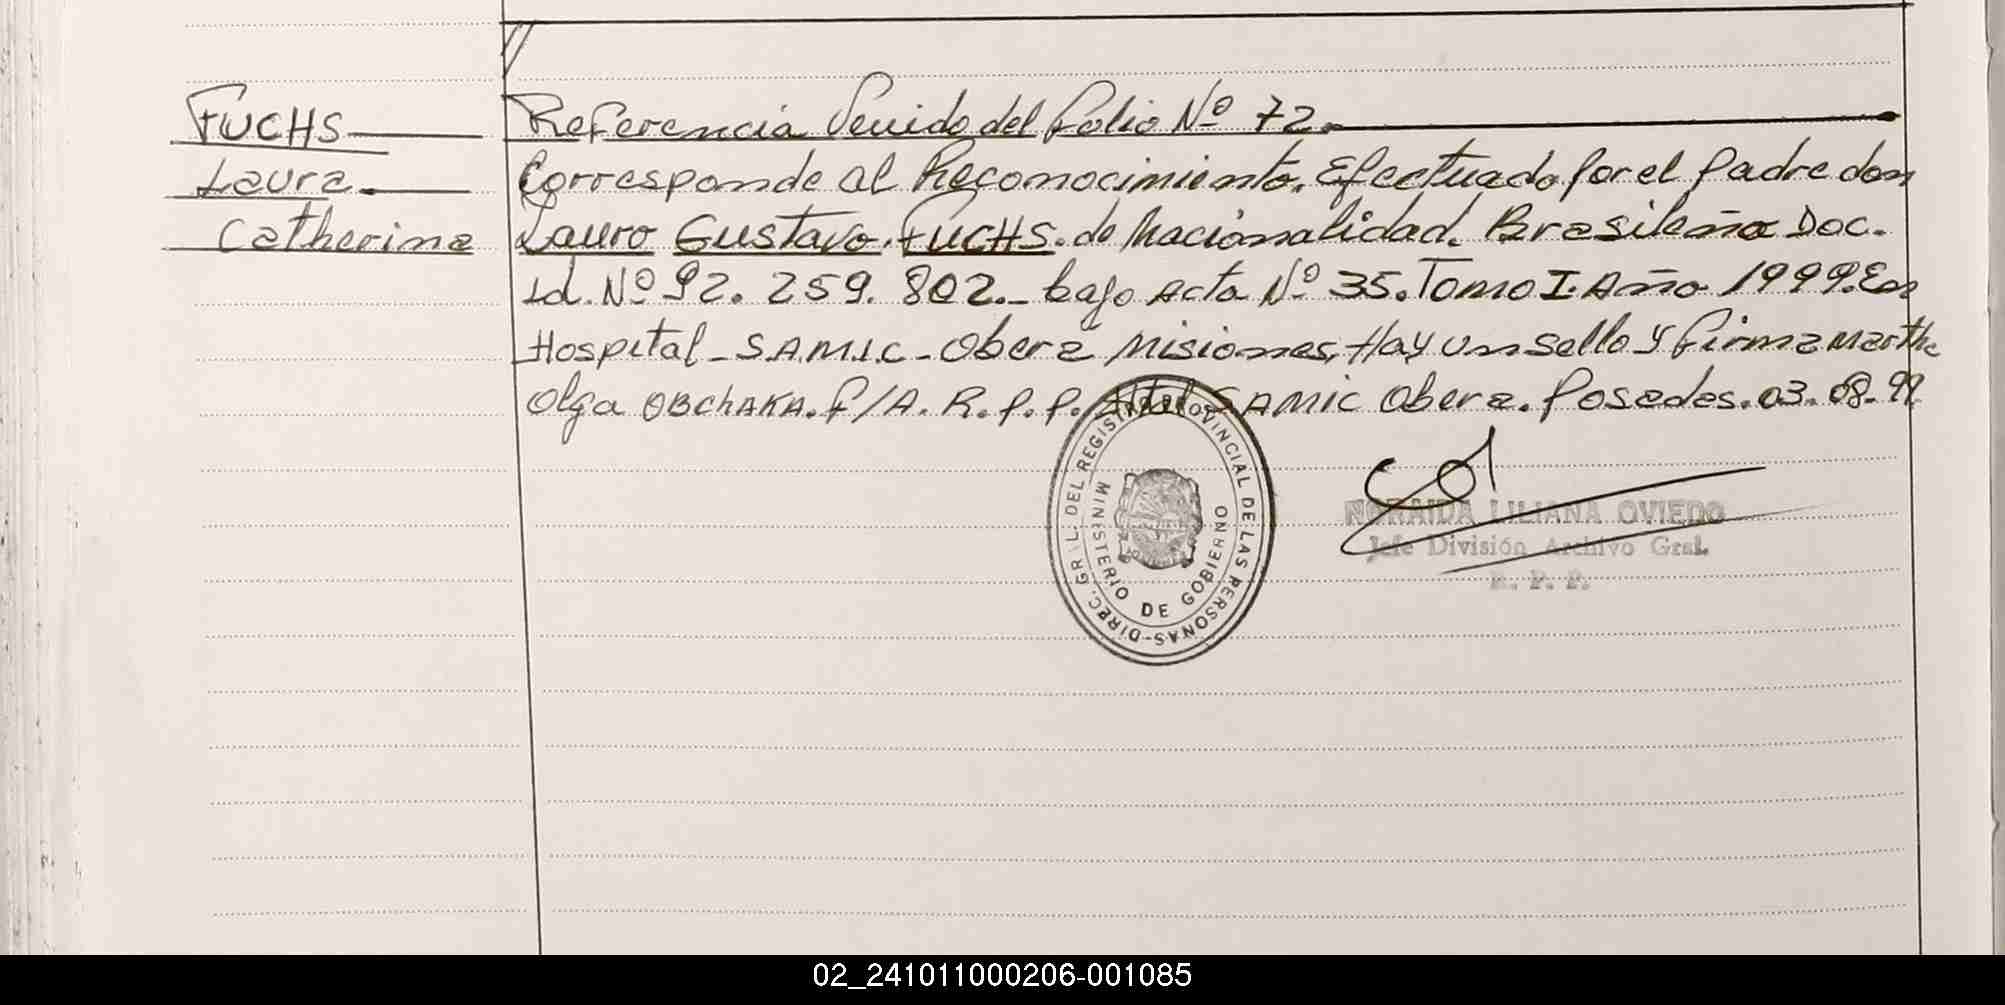 FUCHS
Laura.
Catherina
Referencia Venido del folio Nº 72.
Corresponde al Reconocimiento. Efectuado por el padre don
Lauro Gustavo. FUCHS. de Nacionalidad. Brasileña Doc.
Id. Nº 92. 259. 802._ bajo Acta Nº 35. Tomo I. Año 1999. En
Hospital - S.A.M.I.C - Obera Misiones, Hay un sello y firma Martha
Olga OBCHAKA. P/A. R. P. P. Htal SAMIC Obera. Posadas. 03. 08. 99.
DIREC. GRAL. DEL REGISTRO PROVINCIAL DE LAS PERSONAS-
MINISTERIO DE GOBIERNO
NORAIDA LILIANA OVIEDO
Jefe División Archivo Gral.
R. P. P.
02_241011000206-001085